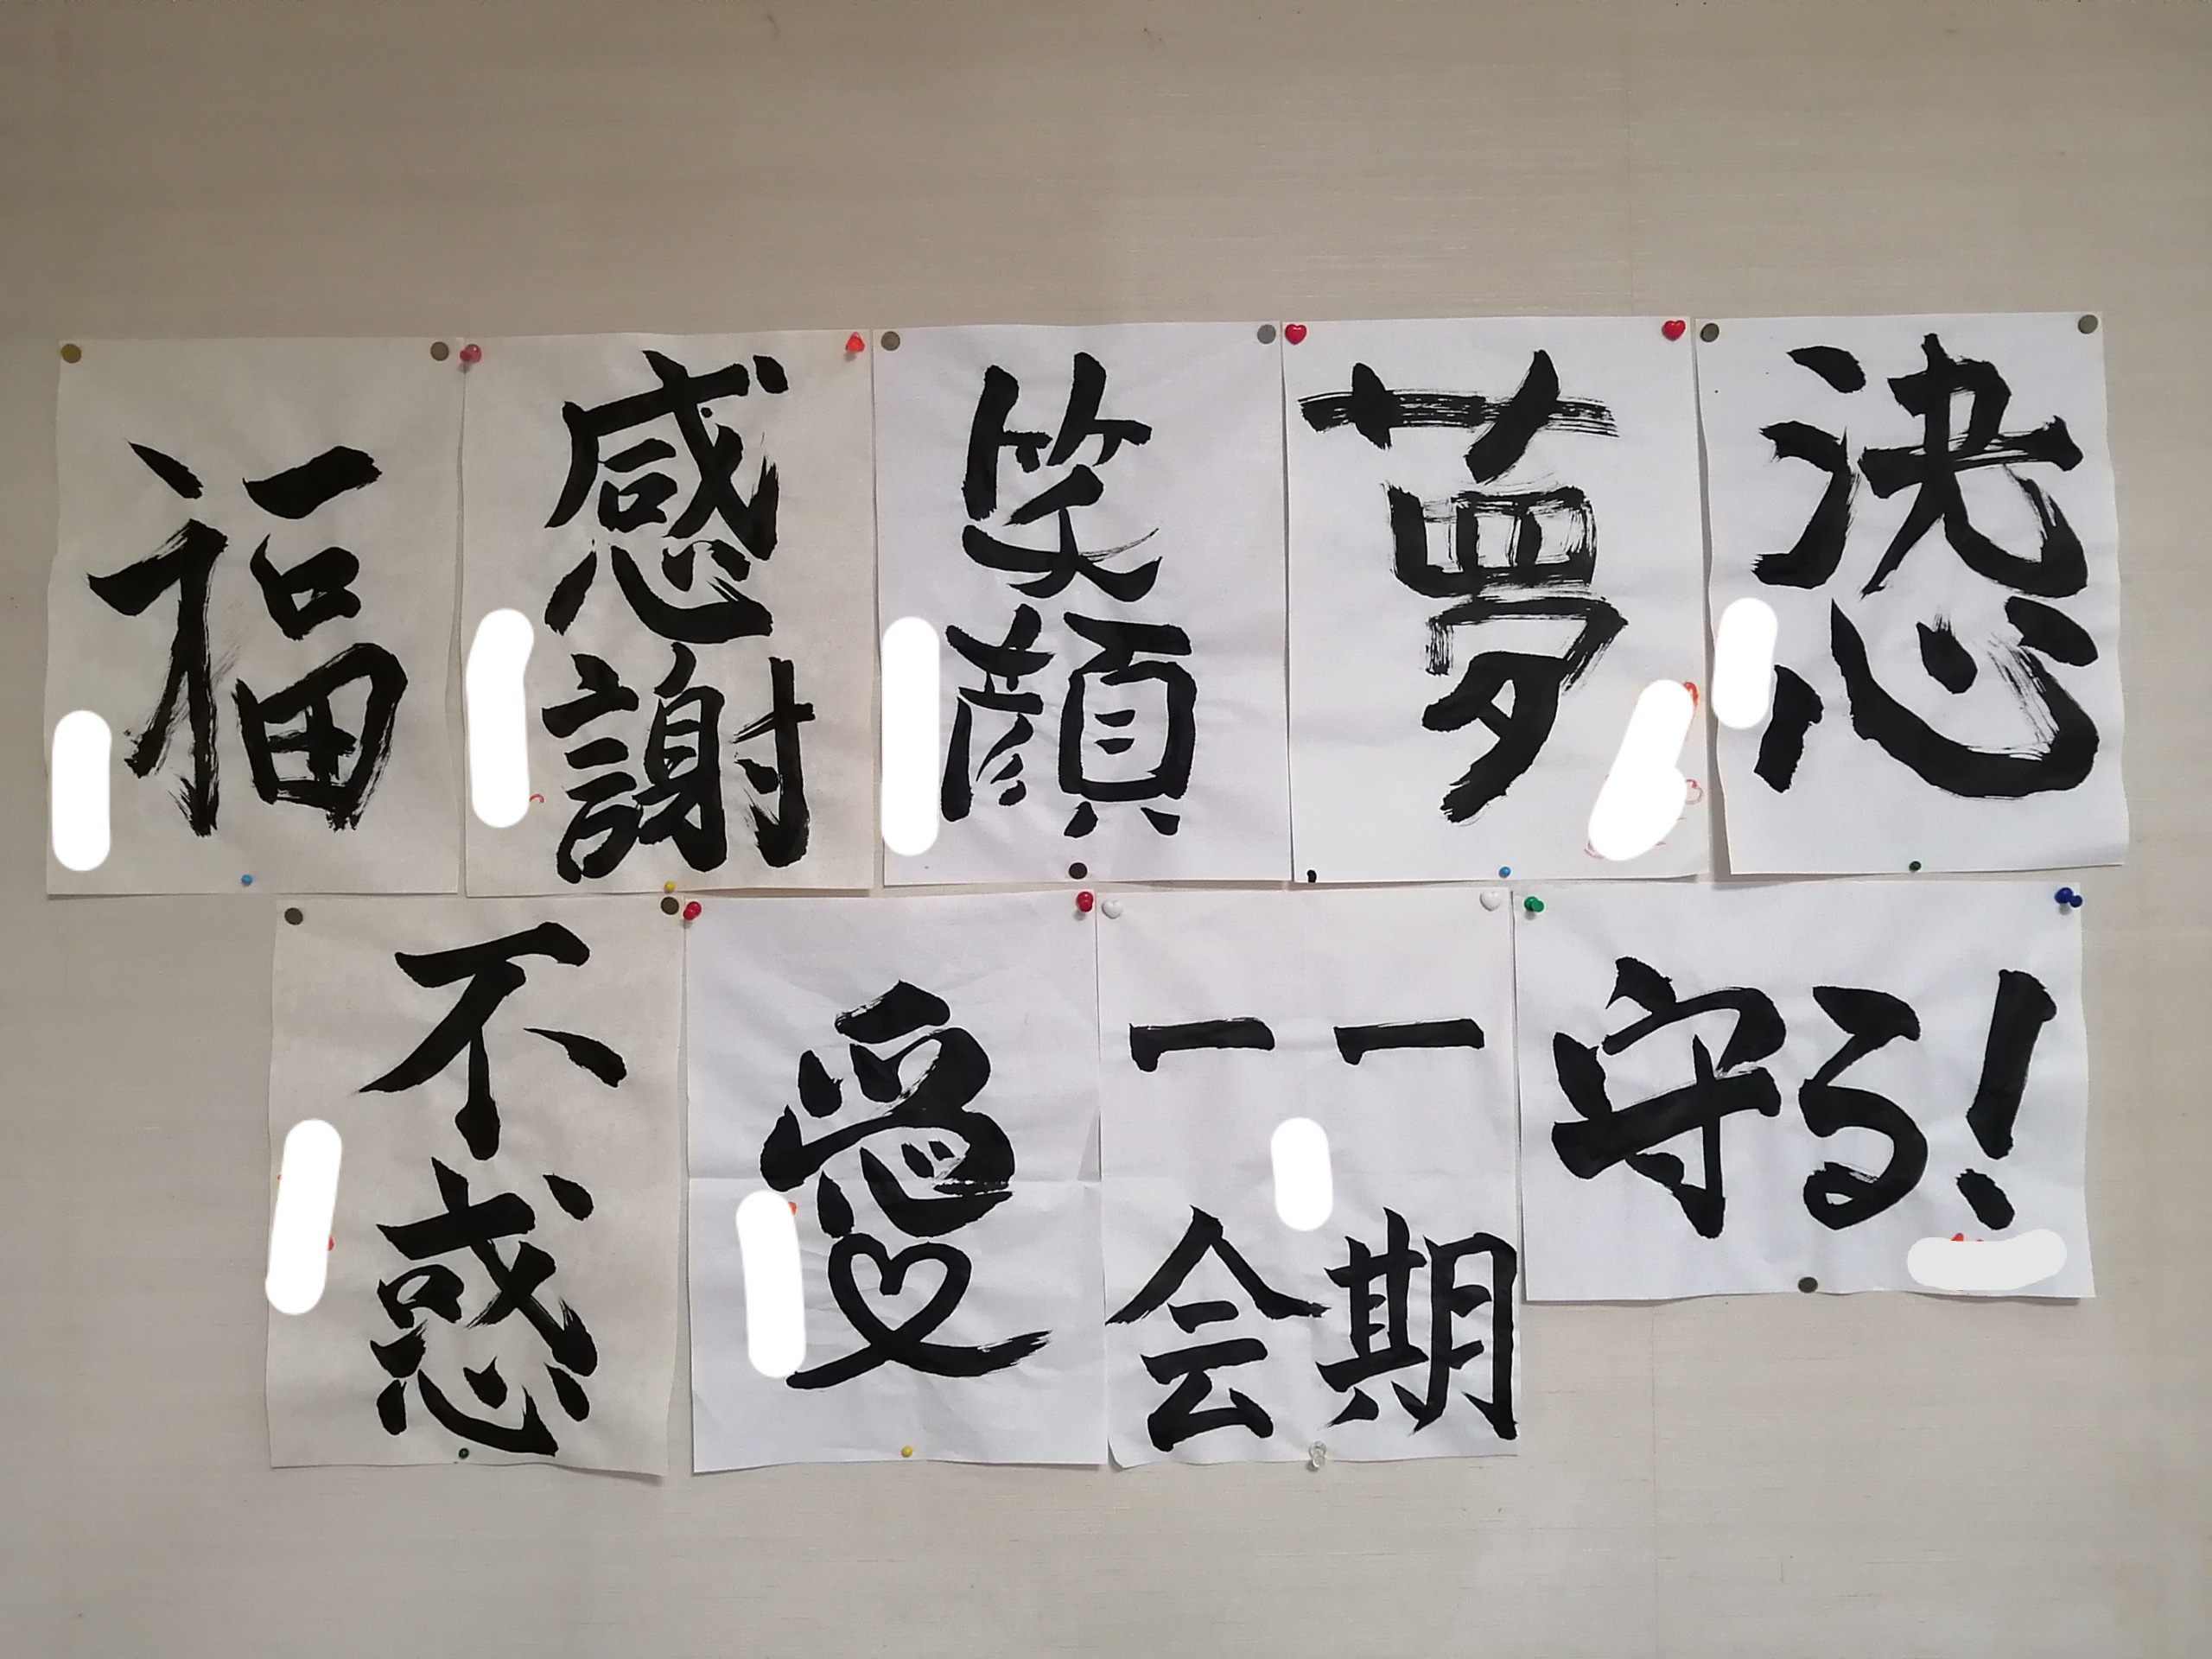 福
感謝
笑顔
夢
決心
不惑
愛
一期
一会
守る!